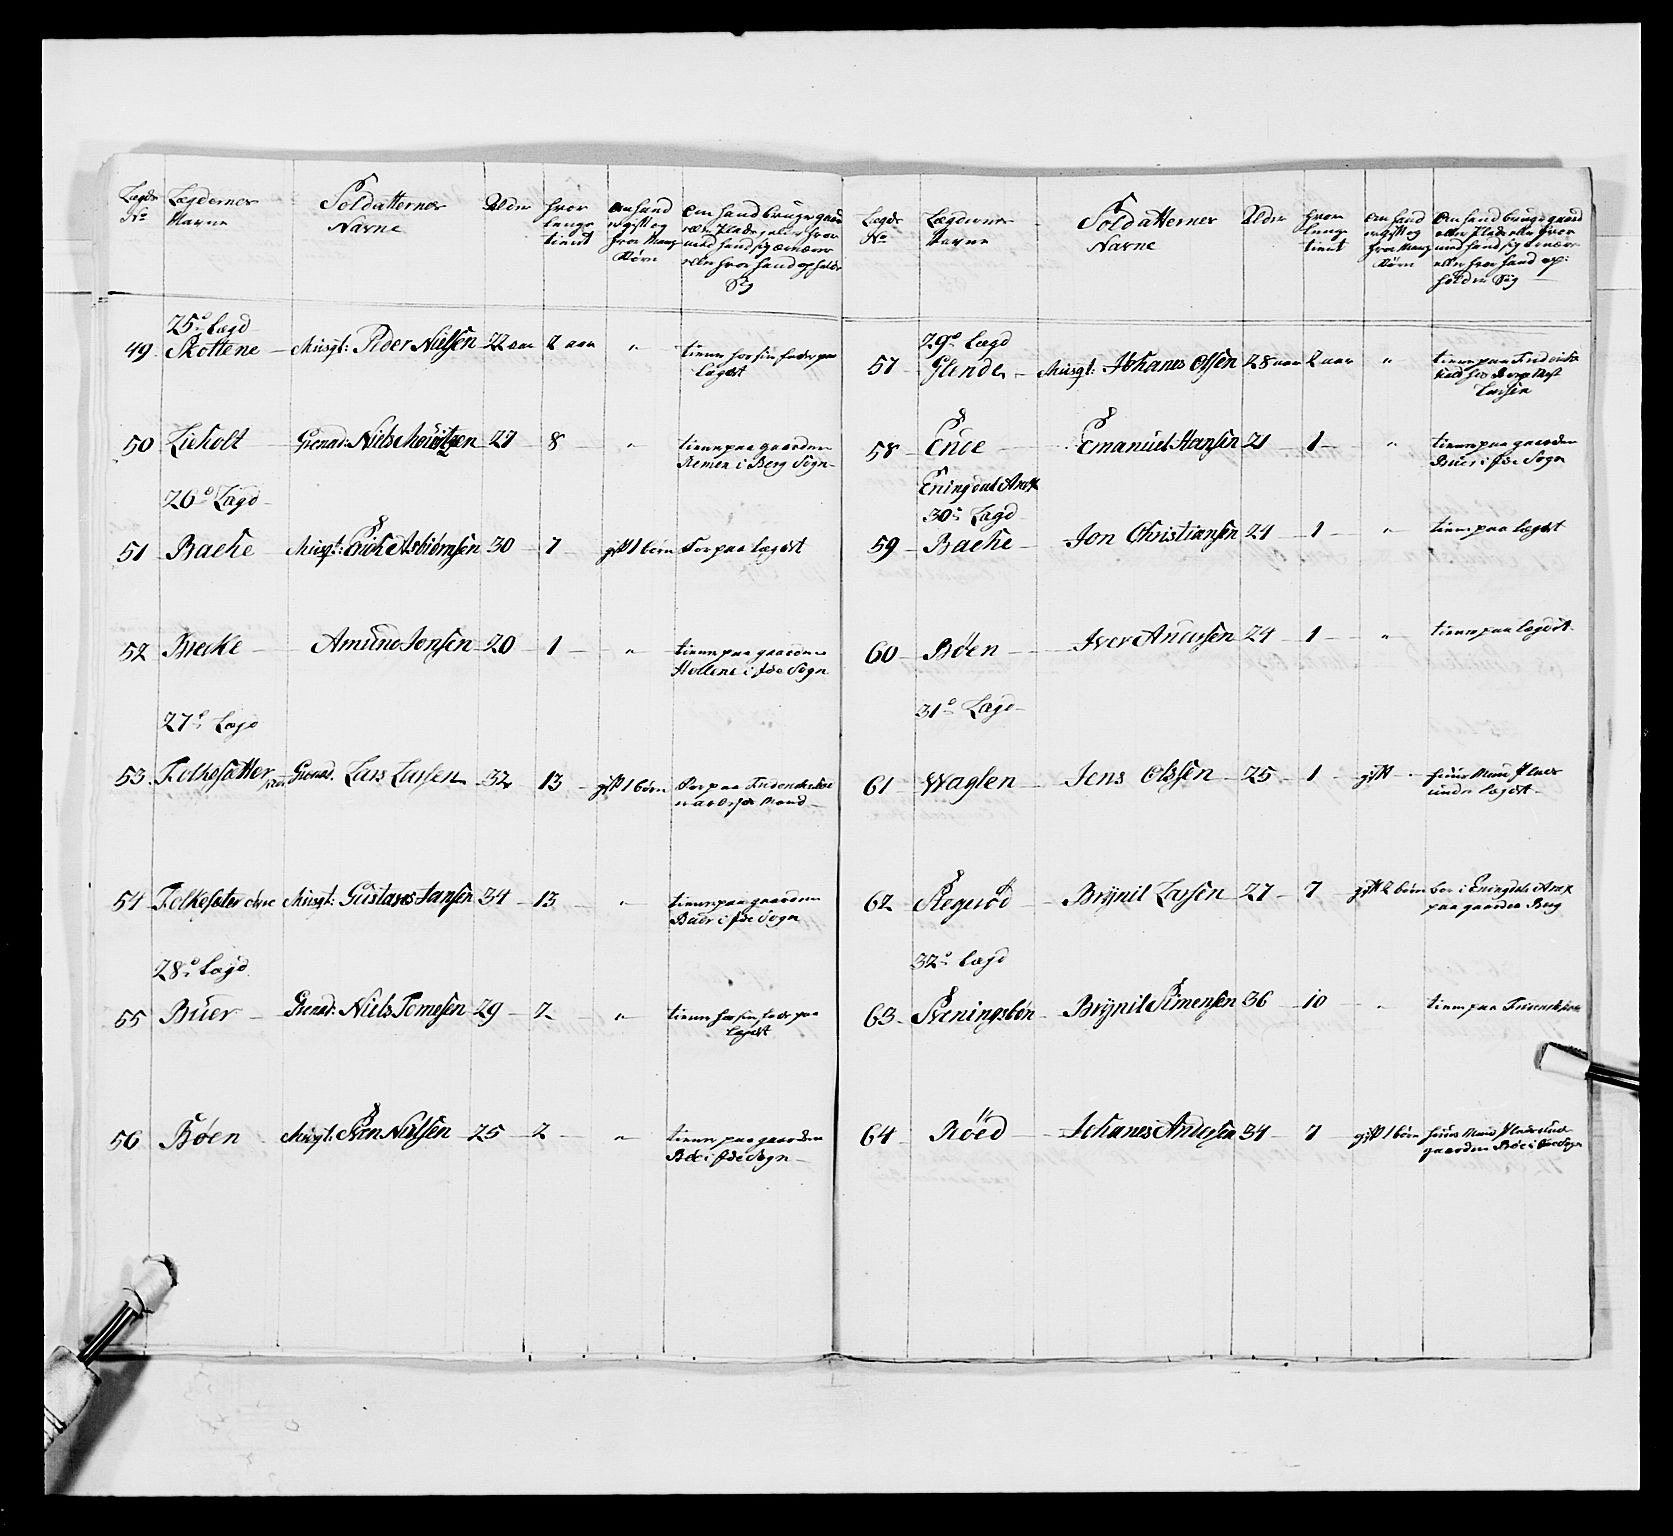 Lægds No | Lægdernes Navne | Soldatternes Navne | Alder | hvor lenge tient | om hand er gift og hvor mange Børn | om hand bruger gaard eller Pladz eller hvor med hand sig ernærer eller hvor hand opholder Sig
25de Lægd
49 Skottene Musqt: Peder Nielsen 22 aar 2 aar " tiener hos sin fader paa Lægdet
50 Lieholt Grenad: Niels Mouritzen 27 8 " tiener paa gaarden Remen i Berg Sogn
26de Lægd
51 Backe Musqt: Erich Asbiørnsen 30 7 gift 1 børn Boer paa Lægdet
52 Brecke Amund Jonsen 20 1 " tiener paa gaarden Hollene i Ide Sogn
27de Lægd
53 Folkesætter Grenad. Lars Larsen 32 13 gift 1 børn Boer paa
54 Folkesæter øvre Musqt: Gustaves Jansen 34 13 " tiener paa gaarden Buer i Ide Sogn
28de Lægd
55 Buer Grenad: Niels Tomesen 29 2 " tiener hos sin fader paa Lægdet
56 Bøen Musqt: Sven Nielsen 25 2 " tiener paa gaarden Bøe i Ide Sogn
Lægds No | Lægdernes Navne | Soldatternes Navne | Alder | hvor lenge tient | om hand er gift og hvor mange Børn | om hand bruger gaard eller Plads eller hvor med hand sig ernærer eller hvor hand opholder Sig
29de Lægd
57 Glende Musqt: Johanes Olsen 28 aar 2 aar " tiener paa Fridrichshald hos Larsen
58 Ende Emanuel Hansen 21 1 " tiener paa gaarden Buer i Ide Sogn
Eningdals Anx
30de Lægd
59 Backe Jon Christiansen 24 1 " tiener paa Lægdet
60 Bøen Iver Andersen 24 1 " tiener paa Lægdet
31de Lægd
61 Waglen Jens Olssen 25 1 gift huus Mand Plads under Lægdet
62 Brynil Larsen 27 7 gift 2 børn boer i Eningdals Anx paa gaarden Berg
32de Lægd
63 Sveningsbøn Brynil Simensen 36 10 " tiener paa
64 Røed Johanes Andersen 34 7 gift 1 børn huus Mand Plads under gaarden Bøe i Ide Sogn